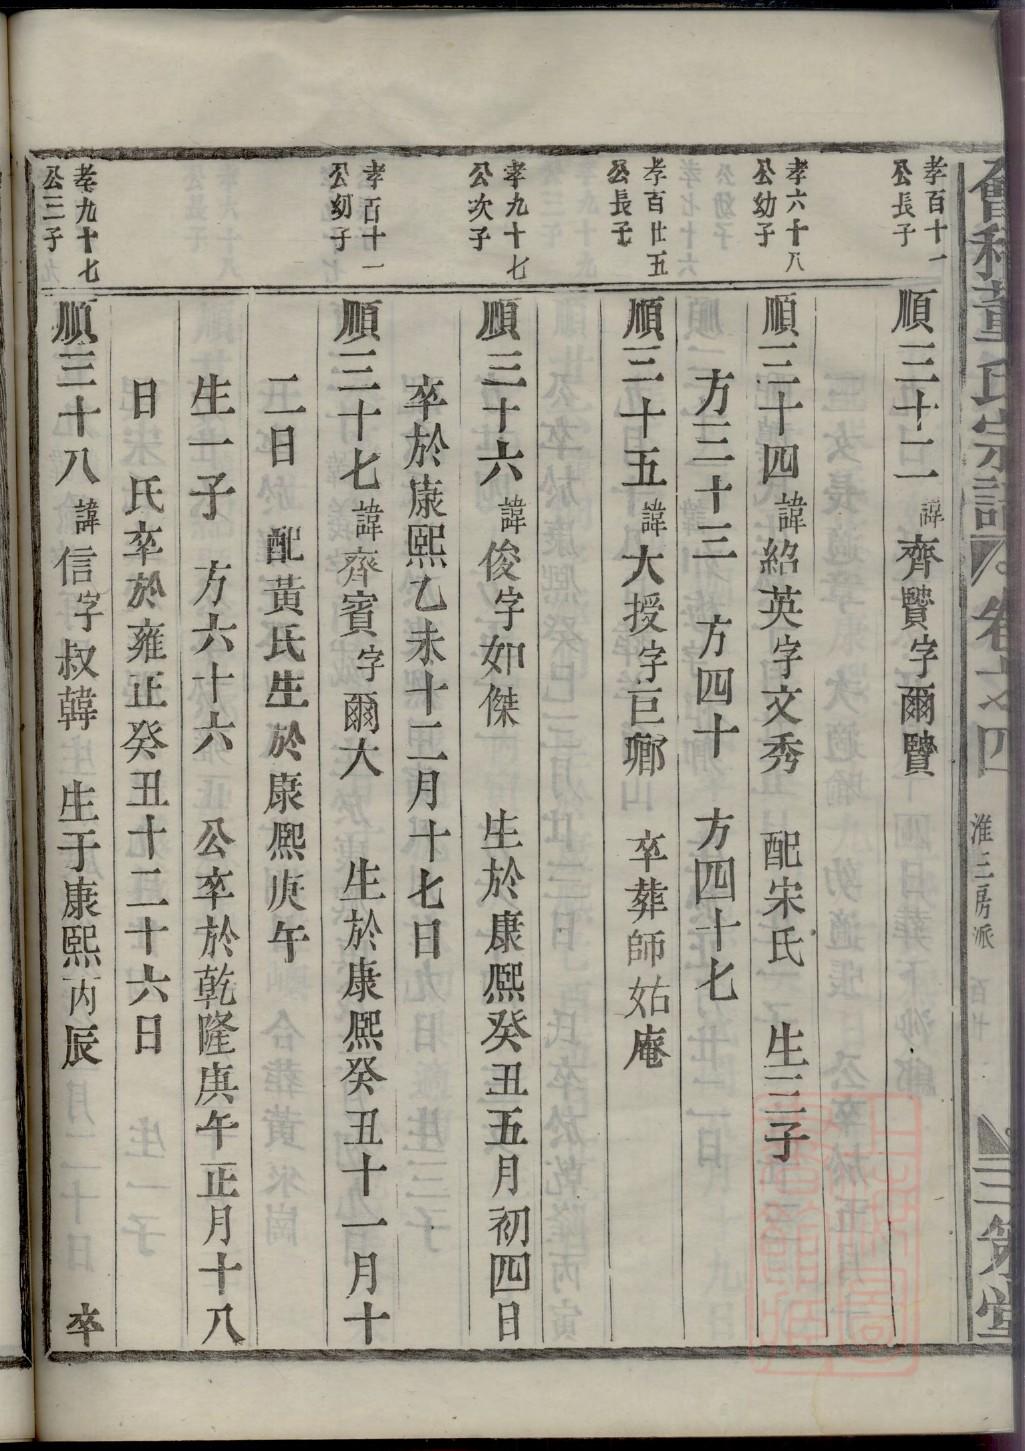 會稽董氏宗譜 卷之四 淮三房派 百十 三策堂
孝百十一
公長子
順三十二 諱齊贒字爾贒
孝六十八
公幼子
順三十四 諱紹英字文秀 配宋氏 生三子
方三十三 方四十 方四十七
孝百廿五
公長子
順三十五 諱大授字巨瑯 卒葬師姑庵
孝九十七
公次子
順三十六 諱俊字如傑 生於康熙癸丑五月初四日
卒於康熙乙未十二月十七日
孝百十一
公幼子
順三十七 諱齊賓字爾大 生於康熙癸丑十一月十
二日 配黃氏生於康熙庚午
生一子 方六十六 公卒於乾隆庚午正月十八
日 氏卒於雍正癸丑十二十六日
孝九十七
公三子
順三十八 諱信字叔韓 生于康熙丙辰 卒